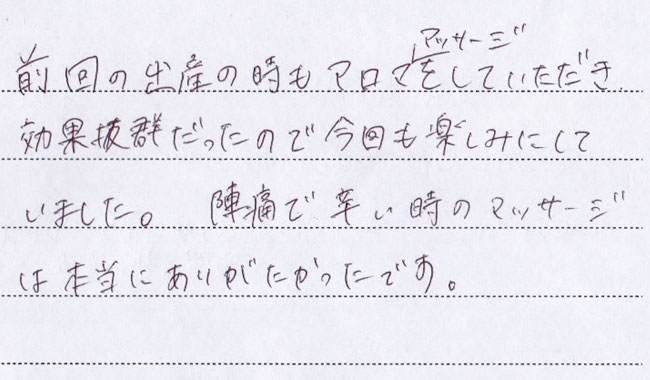 前回の出産の時もアロママッサージをしていただき、
効果抜群だったので今回も楽しみにして
いました。 陣痛で辛い時のマッサージ
は本当にありがたかったです。